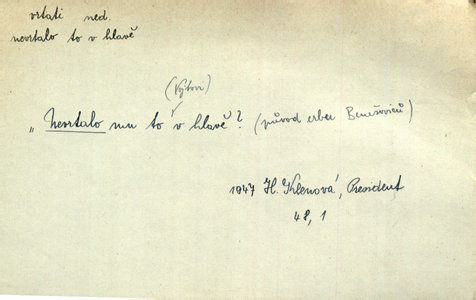 vrtati ned.
nevrtalo to v hlavě
(Vítovi)
„Nevrtalo mu to v hlavě? (původ erbu Benešoviců)
1947 H. Klenová, President
48, 1